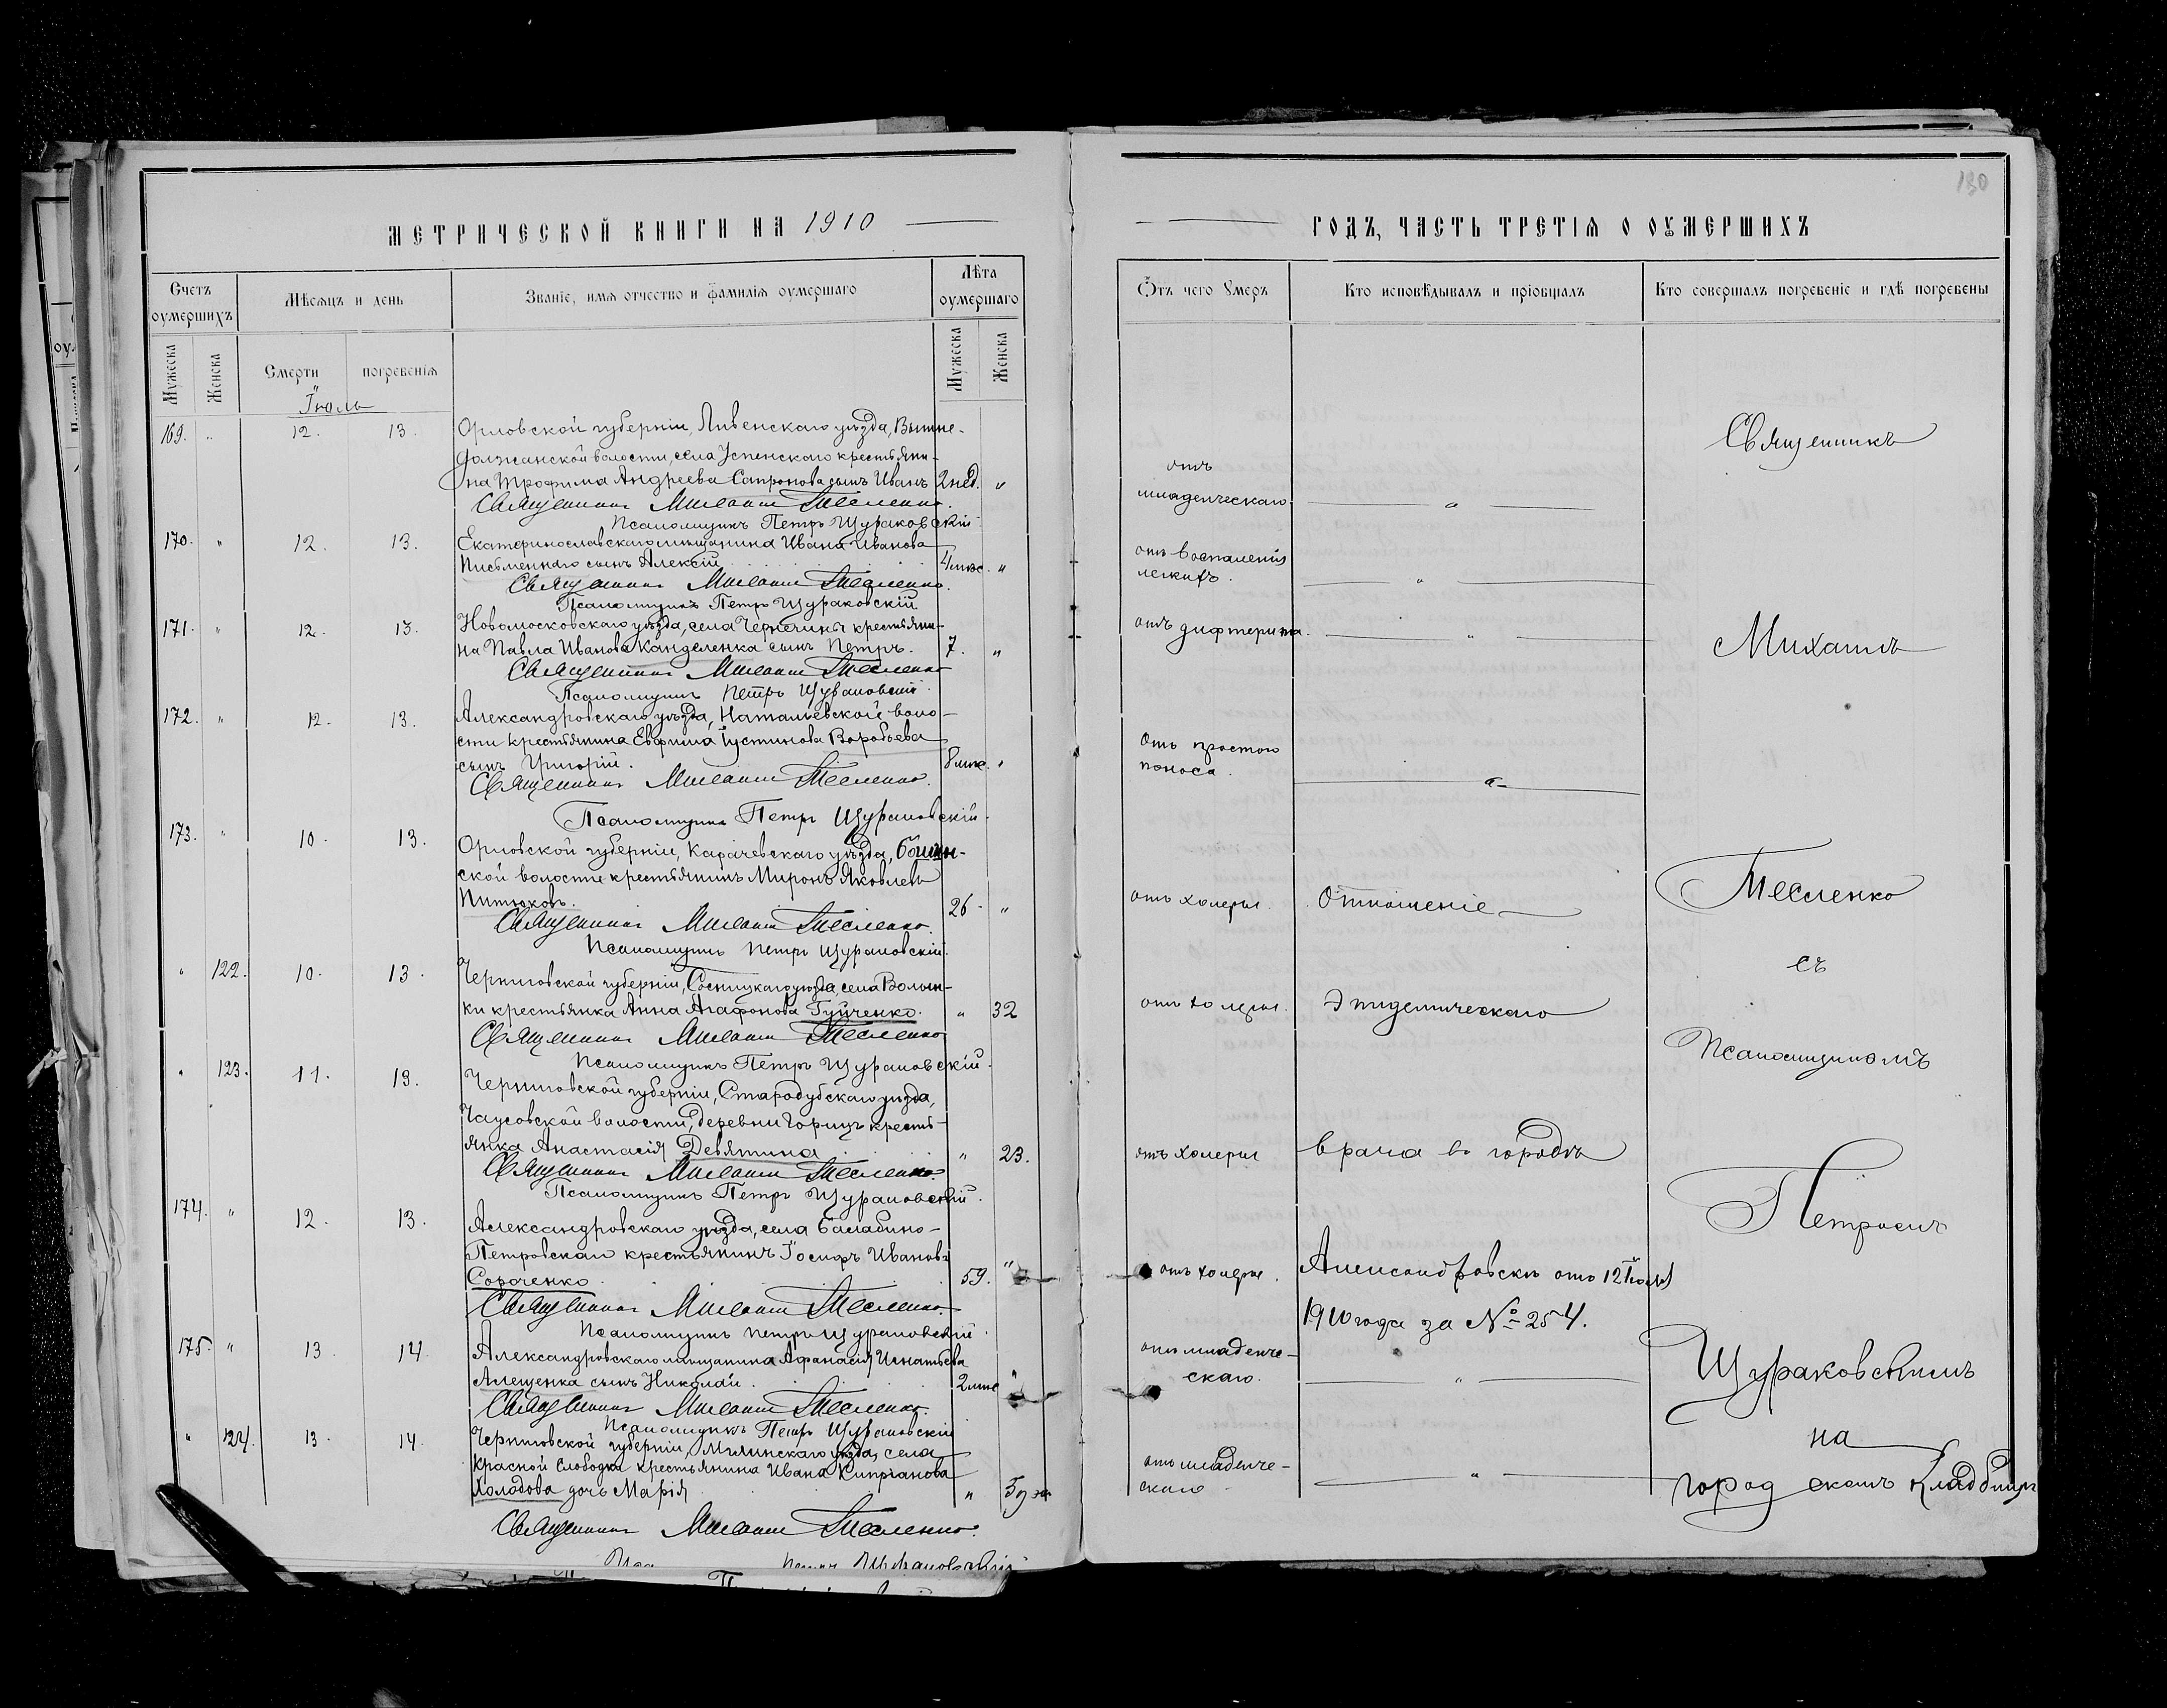 МЕТРИЧЕСКОЙ КНИГИ НА 1910
Счетъ оумершихъ
Мѣсяцъ и день
Званіе, имя отчество и фамилія оумершаго
Лѣта оумершаго
Мужеска
Женска
Смерти
погребенія
Мужеска
Женска
Іюль
169. " 12. 13. Орловской губерніи, Ливенскаго уѣзда, Вышне-
должанской волости, села Успенскаго крестьяни-
на Трофима Андреева Сапронова сынъ Иванъ 2 нед. "
Священникъ Михаилъ Тесленко.
Псаломщикъ Петръ Щураковскій
170. " 12. 13. Екатеринославскаго мѣщанина Ивана Иванова
Письменнаго сынъ Алексій 4 мѣс. "
Священникъ Михаилъ Тесленко.
Псаломщикъ Петръ Щураковскій
171. " 12. 13. Новомосковскаго уѣзда, села Чернечины крестьяни-
на Павла Иванова Канделенка сынъ Петръ. 7. "
Священникъ Михаилъ Тесленко
Псаломщикъ Петръ Щураковскій.
172. " 12. 13. Александровскаго уѣзда, Натальевской воло-
сти крестьянина Евфима Іустинова Воробьева
сынъ Григорій. 8 мѣс. "
Священникъ Михаилъ Тесленко.
Псаломщикъ Петръ Щураковскій.
173. " 10. 13. Орловской губерніи, Карачевскаго уѣзда,
ской волости крестьянинъ Миронъ Яковлевъ
Питюковъ. 26. "
Священникъ Михаилъ Тесленко.
Псаломщикъ Петръ Щураковскій.
" 122. 10. 13. Черниговской губерніи, Сосницкаго уѣзда, села Волын-
ки крестьянка Анна Агафонова Гуйченко. " 32
Священникъ Михаилъ Тесленко
Псаломщикъ Петръ Щураковскій.
" 123. 11. 13. Черниговской губерніи, Стародубскаго уѣзда,
Чаусовской волости, деревни Горицъ кресть-
янка Анастасія Девятина " 23.
Священникъ Михаилъ Тесленко.
Псаломщикъ Петръ Щураковскій.
174. " 12. 13. Александровскаго уѣзда, села Балабино-
Петровскаго крестьянинъ Іосифъ Ивановъ
Сороченко 59. "
Священникъ Михаилъ Тесленко.
Псаломщикъ Петръ Щураковскій.
175. " 13. 14. Александровскаго мѣщанина Афанасія Игнатьева
Алещенка сынъ Николай. 2 мѣс "
Священникъ Михаилъ Тесленко.
Псаломщикъ Петръ Щураковскій
" 124. 13. 14. Черниговской губерніи, Мглинскаго уѣзда, села
Красной Слободки крестьянина Ивана Кипріанова
Холодова дочь Марія "
Священникъ Михаилъ Тесленко.
Петръ Щураковскій
130
ГОДЪ, ЧАСТЬ ТРЕТІЯ О ОУМЕРШИХЪ
Отъ чего Умеръ
Кто исповѣдывалъ и пріобщалъ
Кто совершалъ погребеніе и гдѣ погребены
отъ
младенческаго "
отъ воспаленія
легкихъ. "
отъ дифтерита. "
Отъ простого
поноса. "
отъ холеры. Отношеніе
отъ холеры. Эпидемическаго
отъ холеры врача въ городѣ
отъ холеры. Александровскъ отъ 12 Іюля
1910 года за № 254.
отъ младенче-
скаго. "
отъ младенче-
скаго "
Священникъ
Михаилъ
Тесленко
съ
Псаломщикомъ
Петромъ
Щураковскимъ
на
городскомъ кладбищѣ